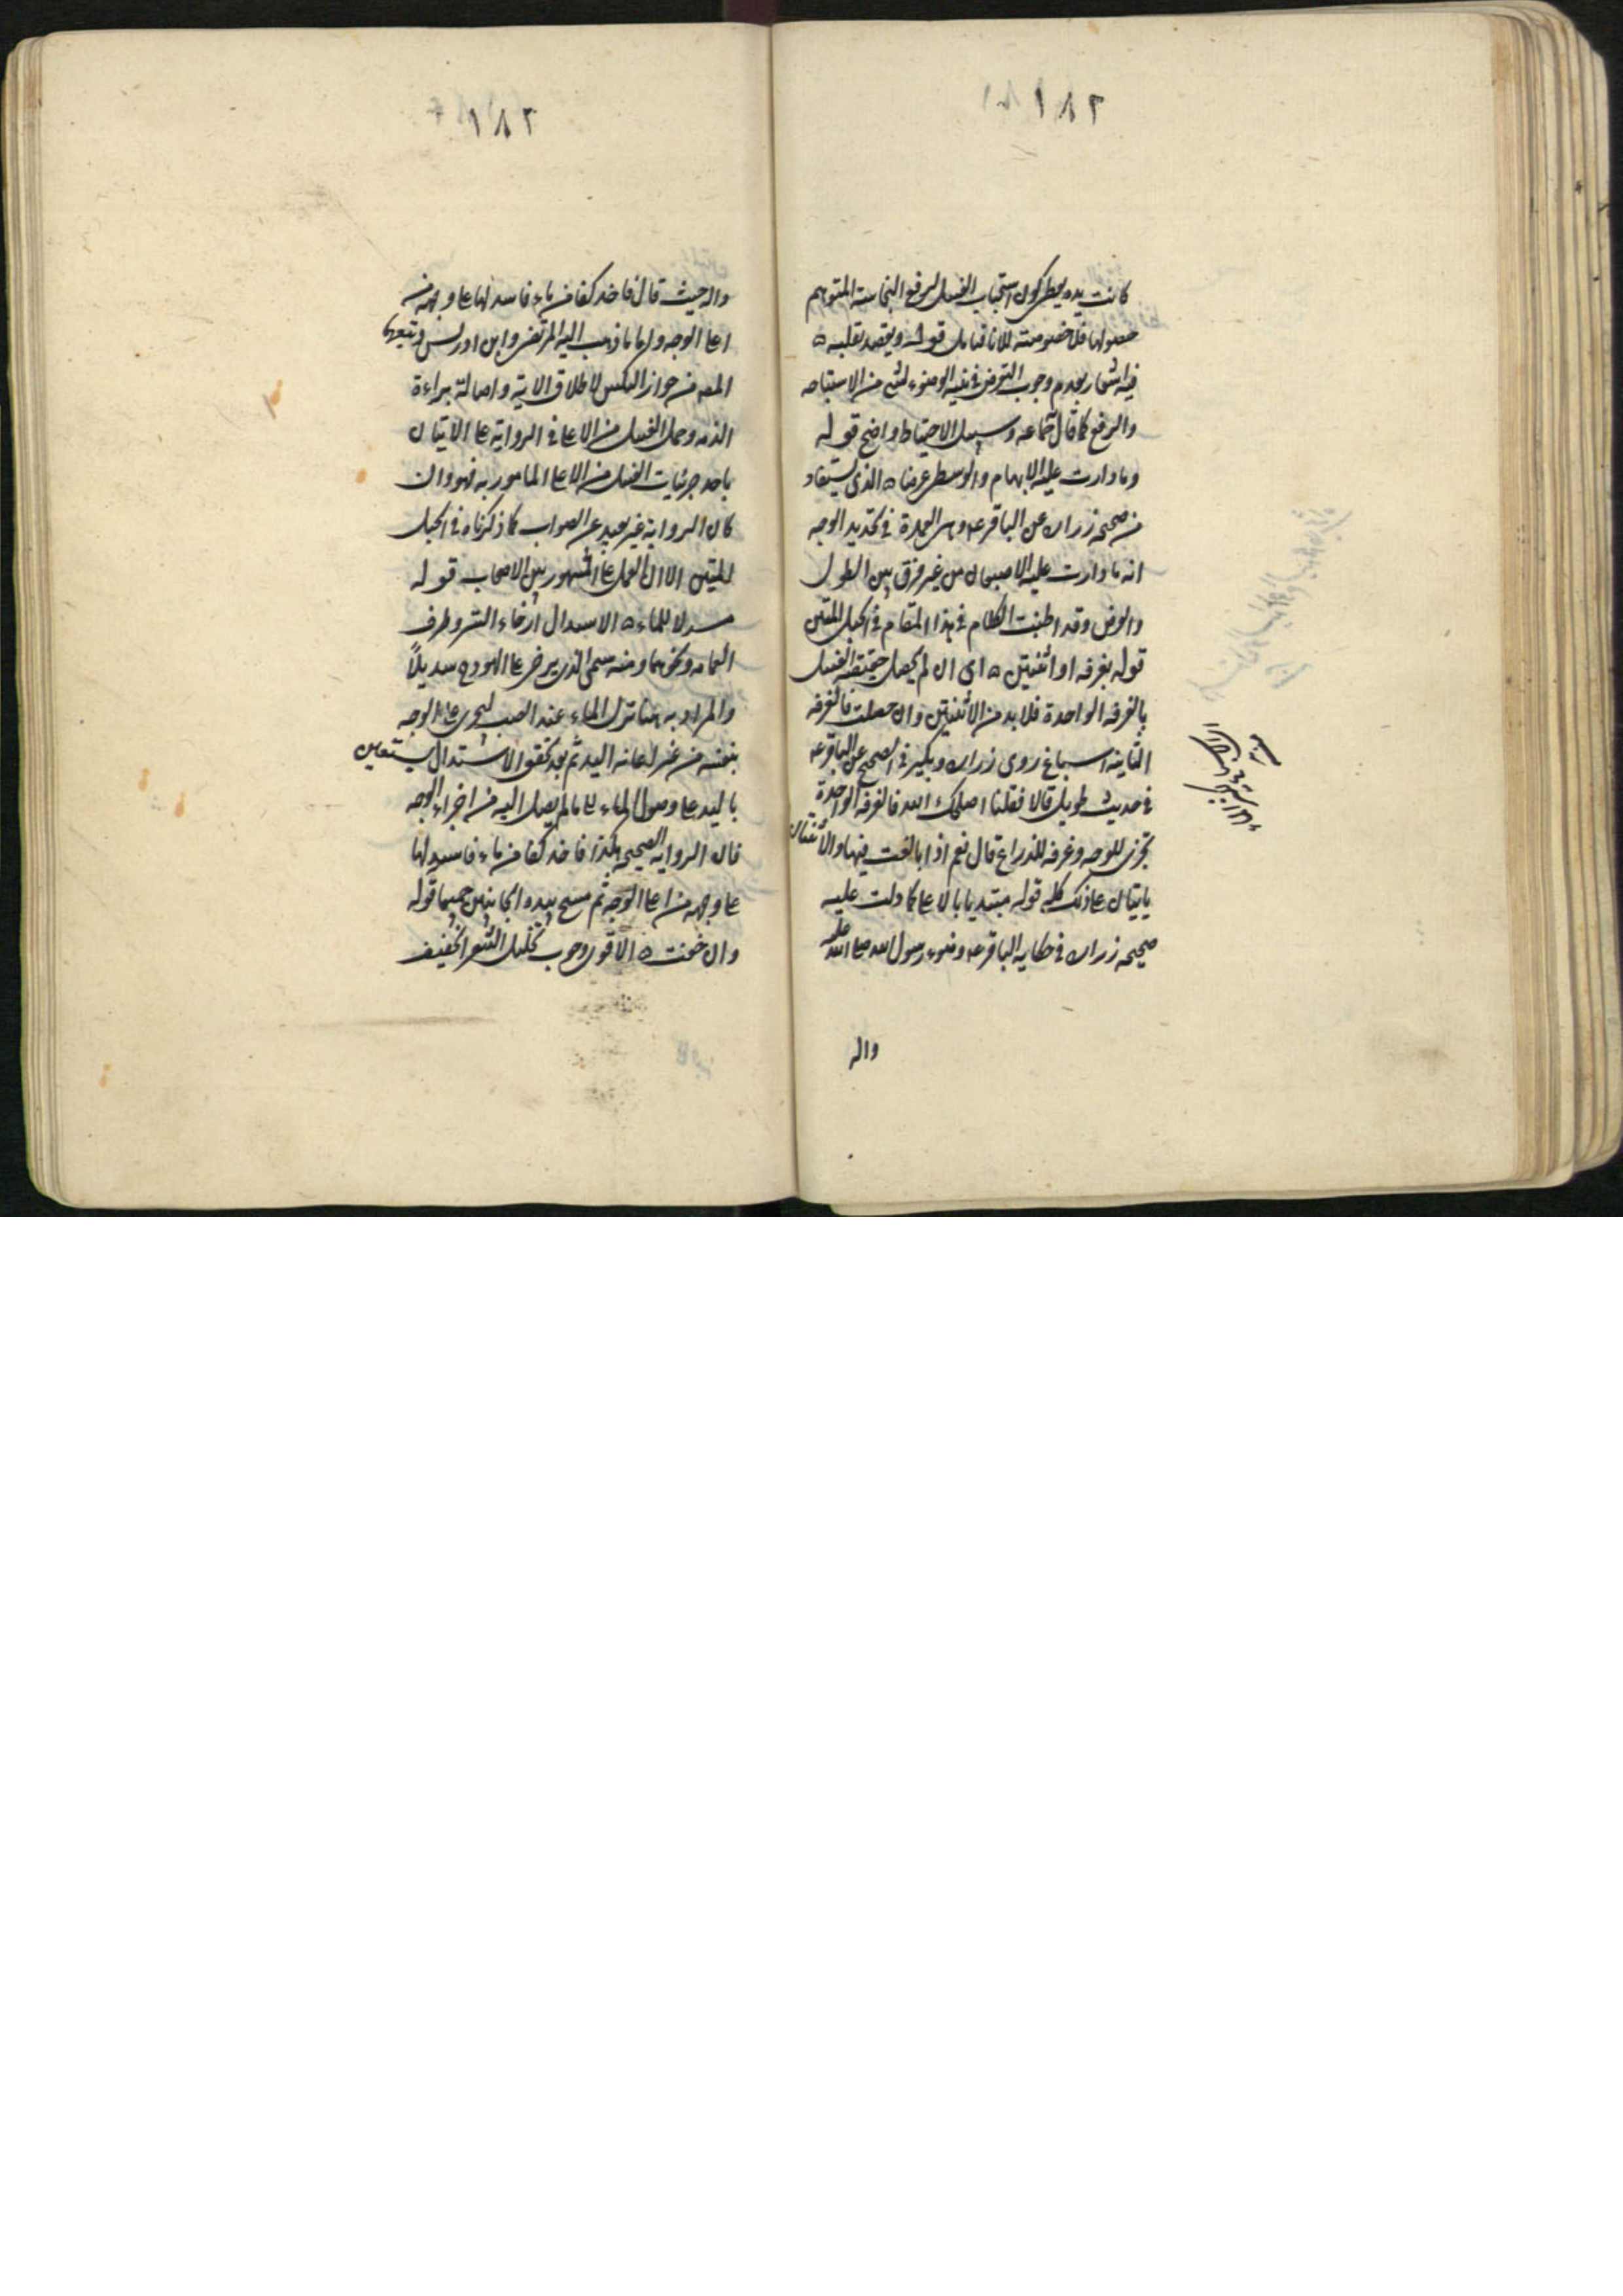 ١٨٢
كانت يده يطهر كون استحباب الغسل لرفع النجاسة المتوهم
حصولها فلا خصوصية للاناء فتامل قوله ويقصد بقلبه ه
فيه اشعار بعدم وجوب التعرض في نية الوضوء لشئ من الاستباحه
والرفع كما قال جماعه وسبيل الاحتياط واضح قوله
وما دارت عليه الابهام والوسطى عرضا ه الذى يستفاد
من صحيحه زراره عن الباقر ع وهى العمدة فى تحديد الوجه
انه ما دارت عليه الاصبعان من غير فرق بين الطول
والعرض وقد اطنبت الكلام فى هذا المقام فى الحبل المتين
قوله بغرفه او اثنتين ه اى ان لم يحصل حقيقة الغسل
بالغرفه الواحدة فلا بد من الاثنتين وان حصلت فالغرفه
الثانية اسباغ روى زراره وبكير فى الصحيح عن الباقر ع
فى حديث طويل قالا فقلنا اصلحك الله فالغرفه الواحدة
تجزى للوجه وغرفه للذراع قال نعم اذا بالغت فيها والاثنتان
ياتيان على ذلك كله قوله مبتديا بالاعلى كما دلت عليه
صحيحه زراره فى حكايه الباقر ع وضوء رسول الله صلى الله عليه
واله
١٨٢
واله حيث قال فاخذ كفا من ماء فاسدلها على وجهه من
اعلى الوجه واما ما ذهب اليه المرتضى وابن ادريس وتبعهما
المص من جواز النكس لاطلاق الاية واصالة براءة
الذمه وحمل الغسل من الاعلى فى الرواية على الاتيان
باحد جزئيات الغسل من الاعلى المامور به فهو وان
كان الرواية غير بعيد عن الصواب كما ذكرناه فى الحبل
المتين الا ان العمل على المشهور بين الاصحاب قوله
مسدلا للماء ه الاسدال ارخاء الستر وطرف
العمامه ونحوهما ومنه سمى الذى يرخى على الهودج سديلاً
والمراد به هنا تنزل الماء عند الصب ليجرى على الوجه
بنفسه من غير اعانه اليد ثم بعد تحقق الاسدال يستعين
باليد على وصول الماء الى ما لم يصل اليه من اجزاء الوجه
فان الروايه الصحيحه هكذا فاخذ كفا من ماء فاسدلها
على وجهه من اعلى الوجه ثم مسح بيده الجانبين جميعا قوله
وان خفت ه الاقوى وجوب تخليل الشعر الخفيف